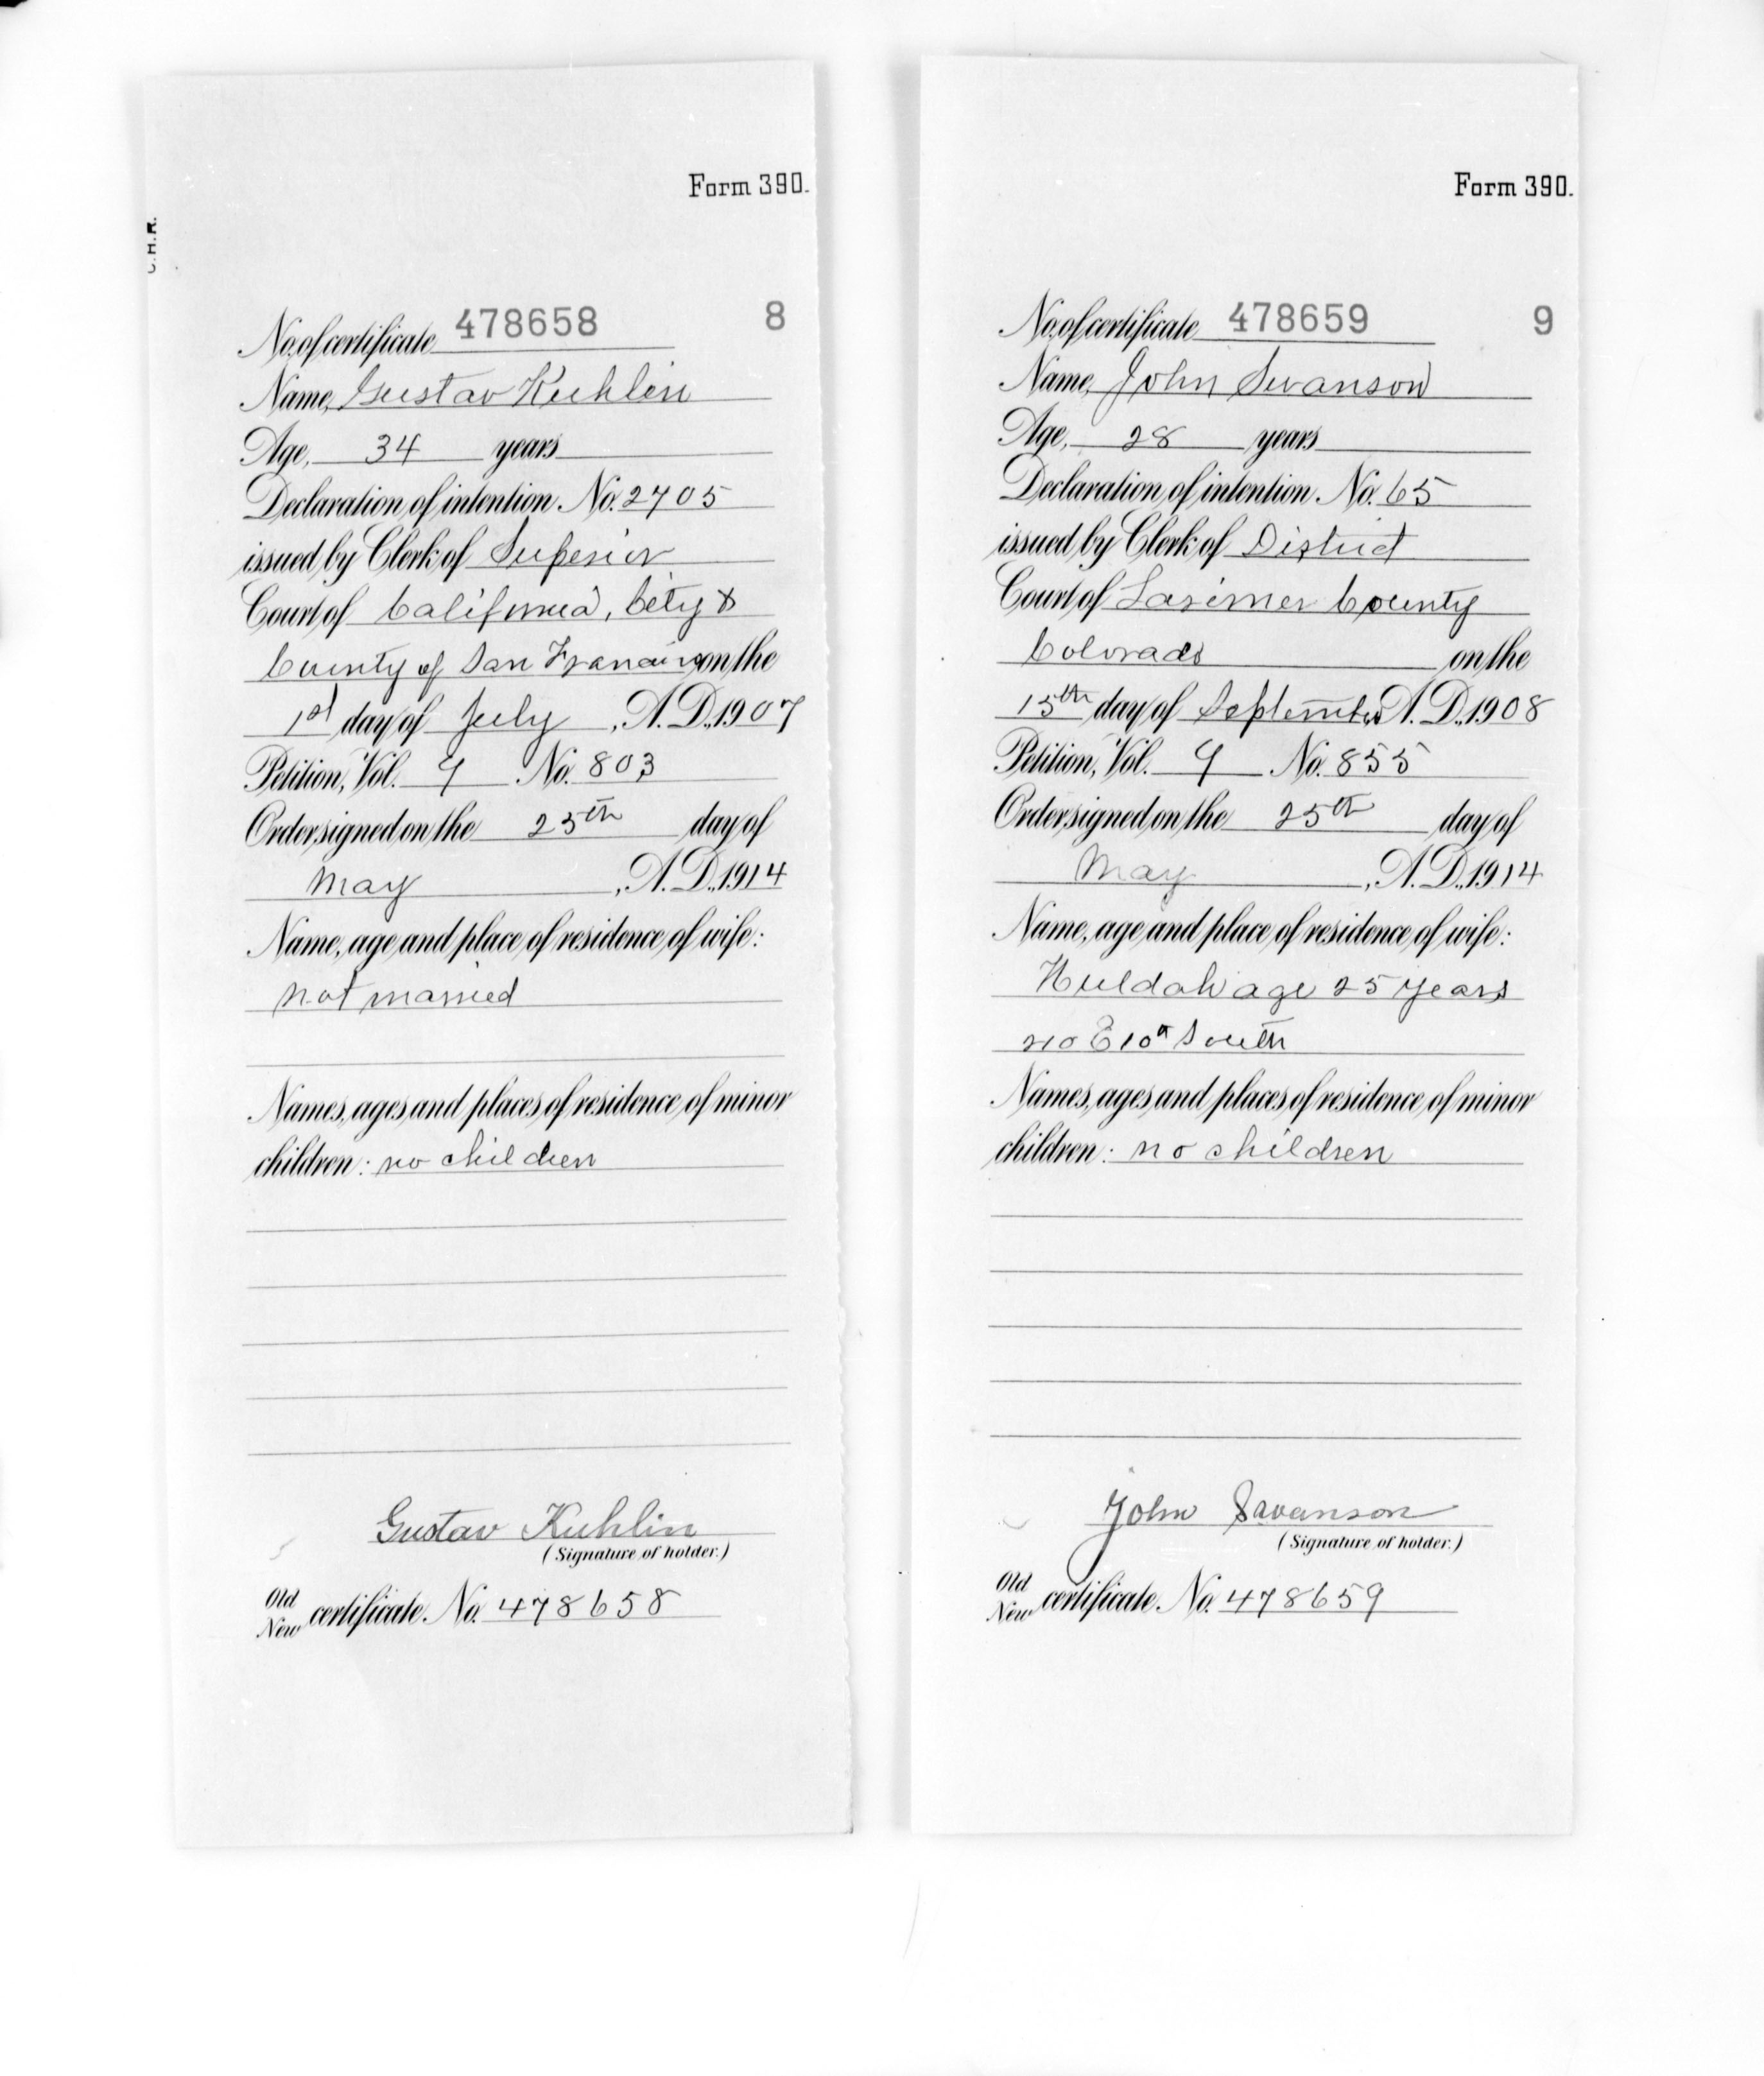 Form 390.
C.H.R.
No. of certificate 478658 8
Name, Gustav Kuhlin
Age, 34 years
Declaration of intention. No. 2705
issued by Clerk of Superior
Court of California, City &
County of San Francisco on the
1st day of July, A.D., 1907
Petition, Vol. 9 No. 803
Order signed on the 25th day of
May, A.D., 1914
Name, age and place of residence of wife:
not married
Names, ages and places of residence of minor
children: no children
Gustav Kuhlin
(Signature of holder.)
Old
New certificate. No. 478658
Form 390.
No. of certificate 478659 9
Name, John Swanson
Age, 28 years
Declaration of intention. No. 65
issued by Clerk of District
Court of Larimer County
Colorado on the
15th day of September A.D., 1908
Petition, Vol. 9 No. 855
Order signed on the 25th day of
May, A.D., 1914
Name, age and place of residence of wife:
Huldah age 25 years
210 E 10th South
Names, ages and places of residence of minor
children: no children
John Swanson
(Signature of holder.)
Old
New certificate. No. 478659